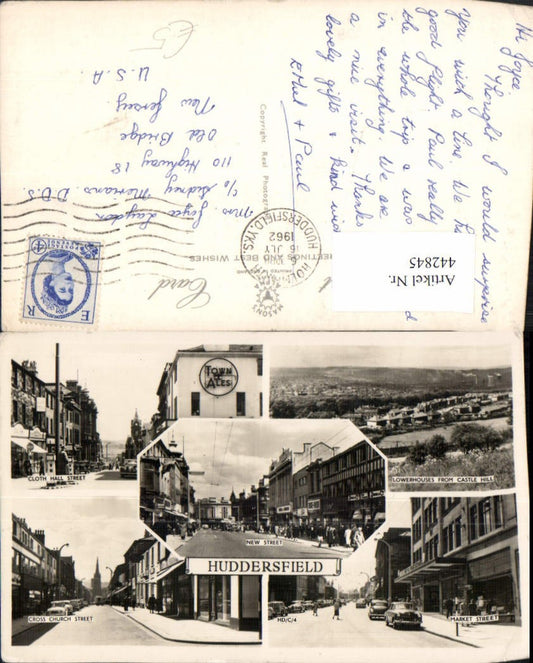 Hi Joyce
Thought I would surprise
you with a line. We had
good flight. Paul really
the whole trip & was
in everything. We are
a nice visit. Thanks
lovely gifts & kind
Ethel & Paul
£5
Mrs Joyce
c/o Sidney D.D.S.
110 Highway 18
Old Bridge
New Jersey.
U.S.A.
Copyright Real Photograph
GREETINGS AND BEST WISHES
Card
HUDDERSFIELD, YKS
16 JLY
1962
MASON'S
E R
POSTAGE REVENUE
4D
Artikel Nr.
442845
TOWN
ALES
CLOTH HALL STREET
LOWERHOUSES FROM CASTLE HILL
NEW STREET
HUDDERSFIELD
CROSS CHURCH STREET
HD/C/4
MARKET STREET